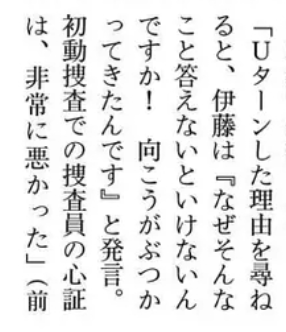 「Uターンした理由を尋ね
ると、伊藤は『なぜそんな
こと答えないといけないん
ですか！　向こうがぶつか
ってきたんです』と発言。
初動捜査での捜査員の心証
は、非常に悪かった」（前